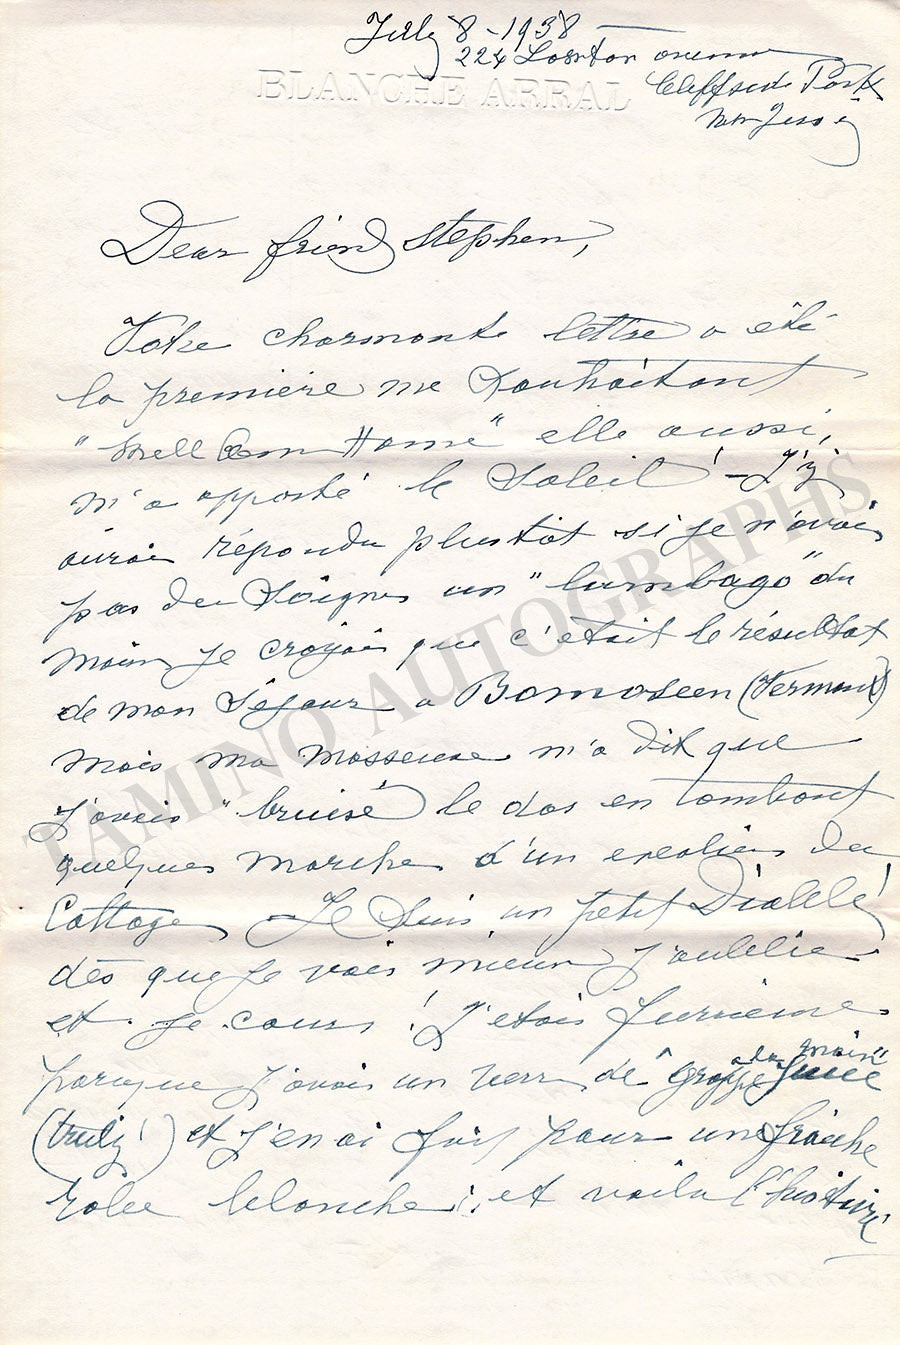 July 8 - 1938
224 avenue
BLANCHE ARRAL
Cliffside Park
New Jersey
Dear friend Stephen,
Votre charmante lettre a été
la première me souhaitant
"Well Com Home" elle aussi,
m'a apporté le Soleil! - J'y
aurais répondu plustôt si je n'avais
pas du soigner un "lumbago" du
moins je croyais que c'était le résultat
de mon séjour a Bomoseen (Vermont)
mais ma masseuse m'a dit que
j'avais "bruisé" le dos en tombant
quelques marches d'un escalier du
Cottage - Je suis un petit Diable!
dès que je vais mieux j'oublie
et je cours! J'etais furieuse
parce que j'avais un verre de grappe juice a la main"
(truly!) et j'en ai sur pour une fraiche
robe blanche; et voila l'histoire
TAMINO AUTOGRAPHS